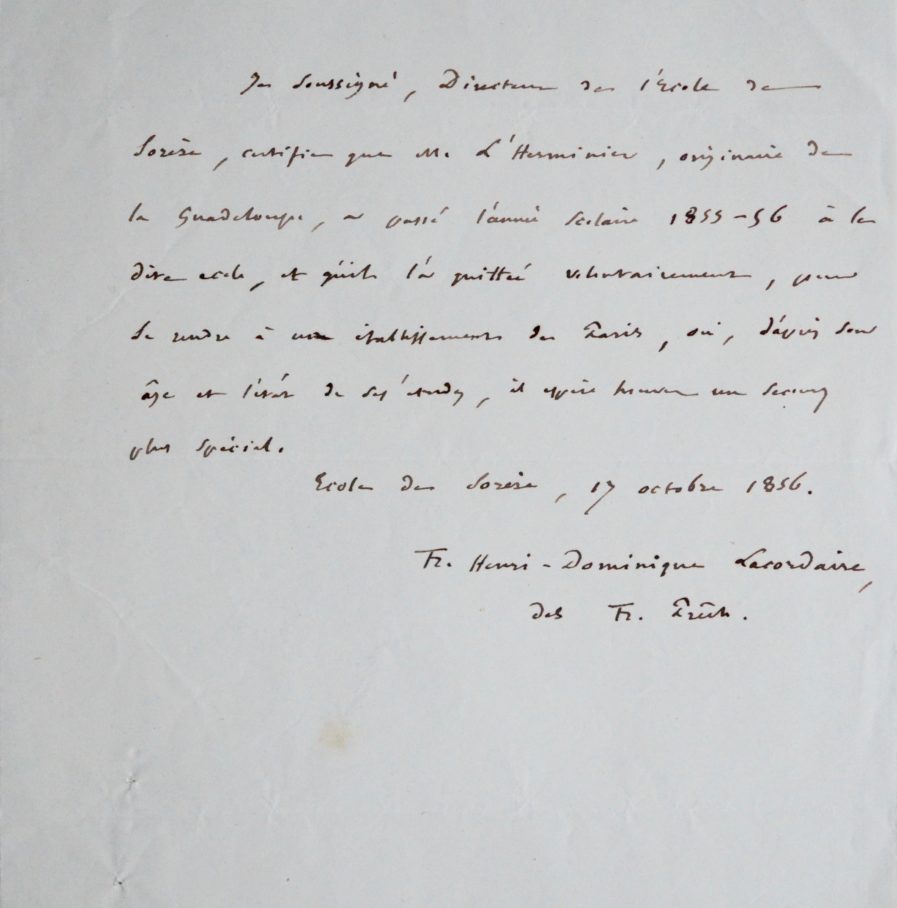 Je soussigné, Directeur de l'Ecole de
Sorèze, certifie que Mr L'Herminier, originaire de
la Guadeloupe, a passé l'année scolaire 1855-56 à la
dite ecole, et qu'il l'a quittée volontairement, pour
se rendre à un établissement de Paris, où, d'après son
âge et l'état de ses études, il espère trouver un secours
plus spécial.
Ecole de Sorèze, 17 octobre 1856.
Fr. Henri-Dominique Lacordaire,
des Fr. Prêch.